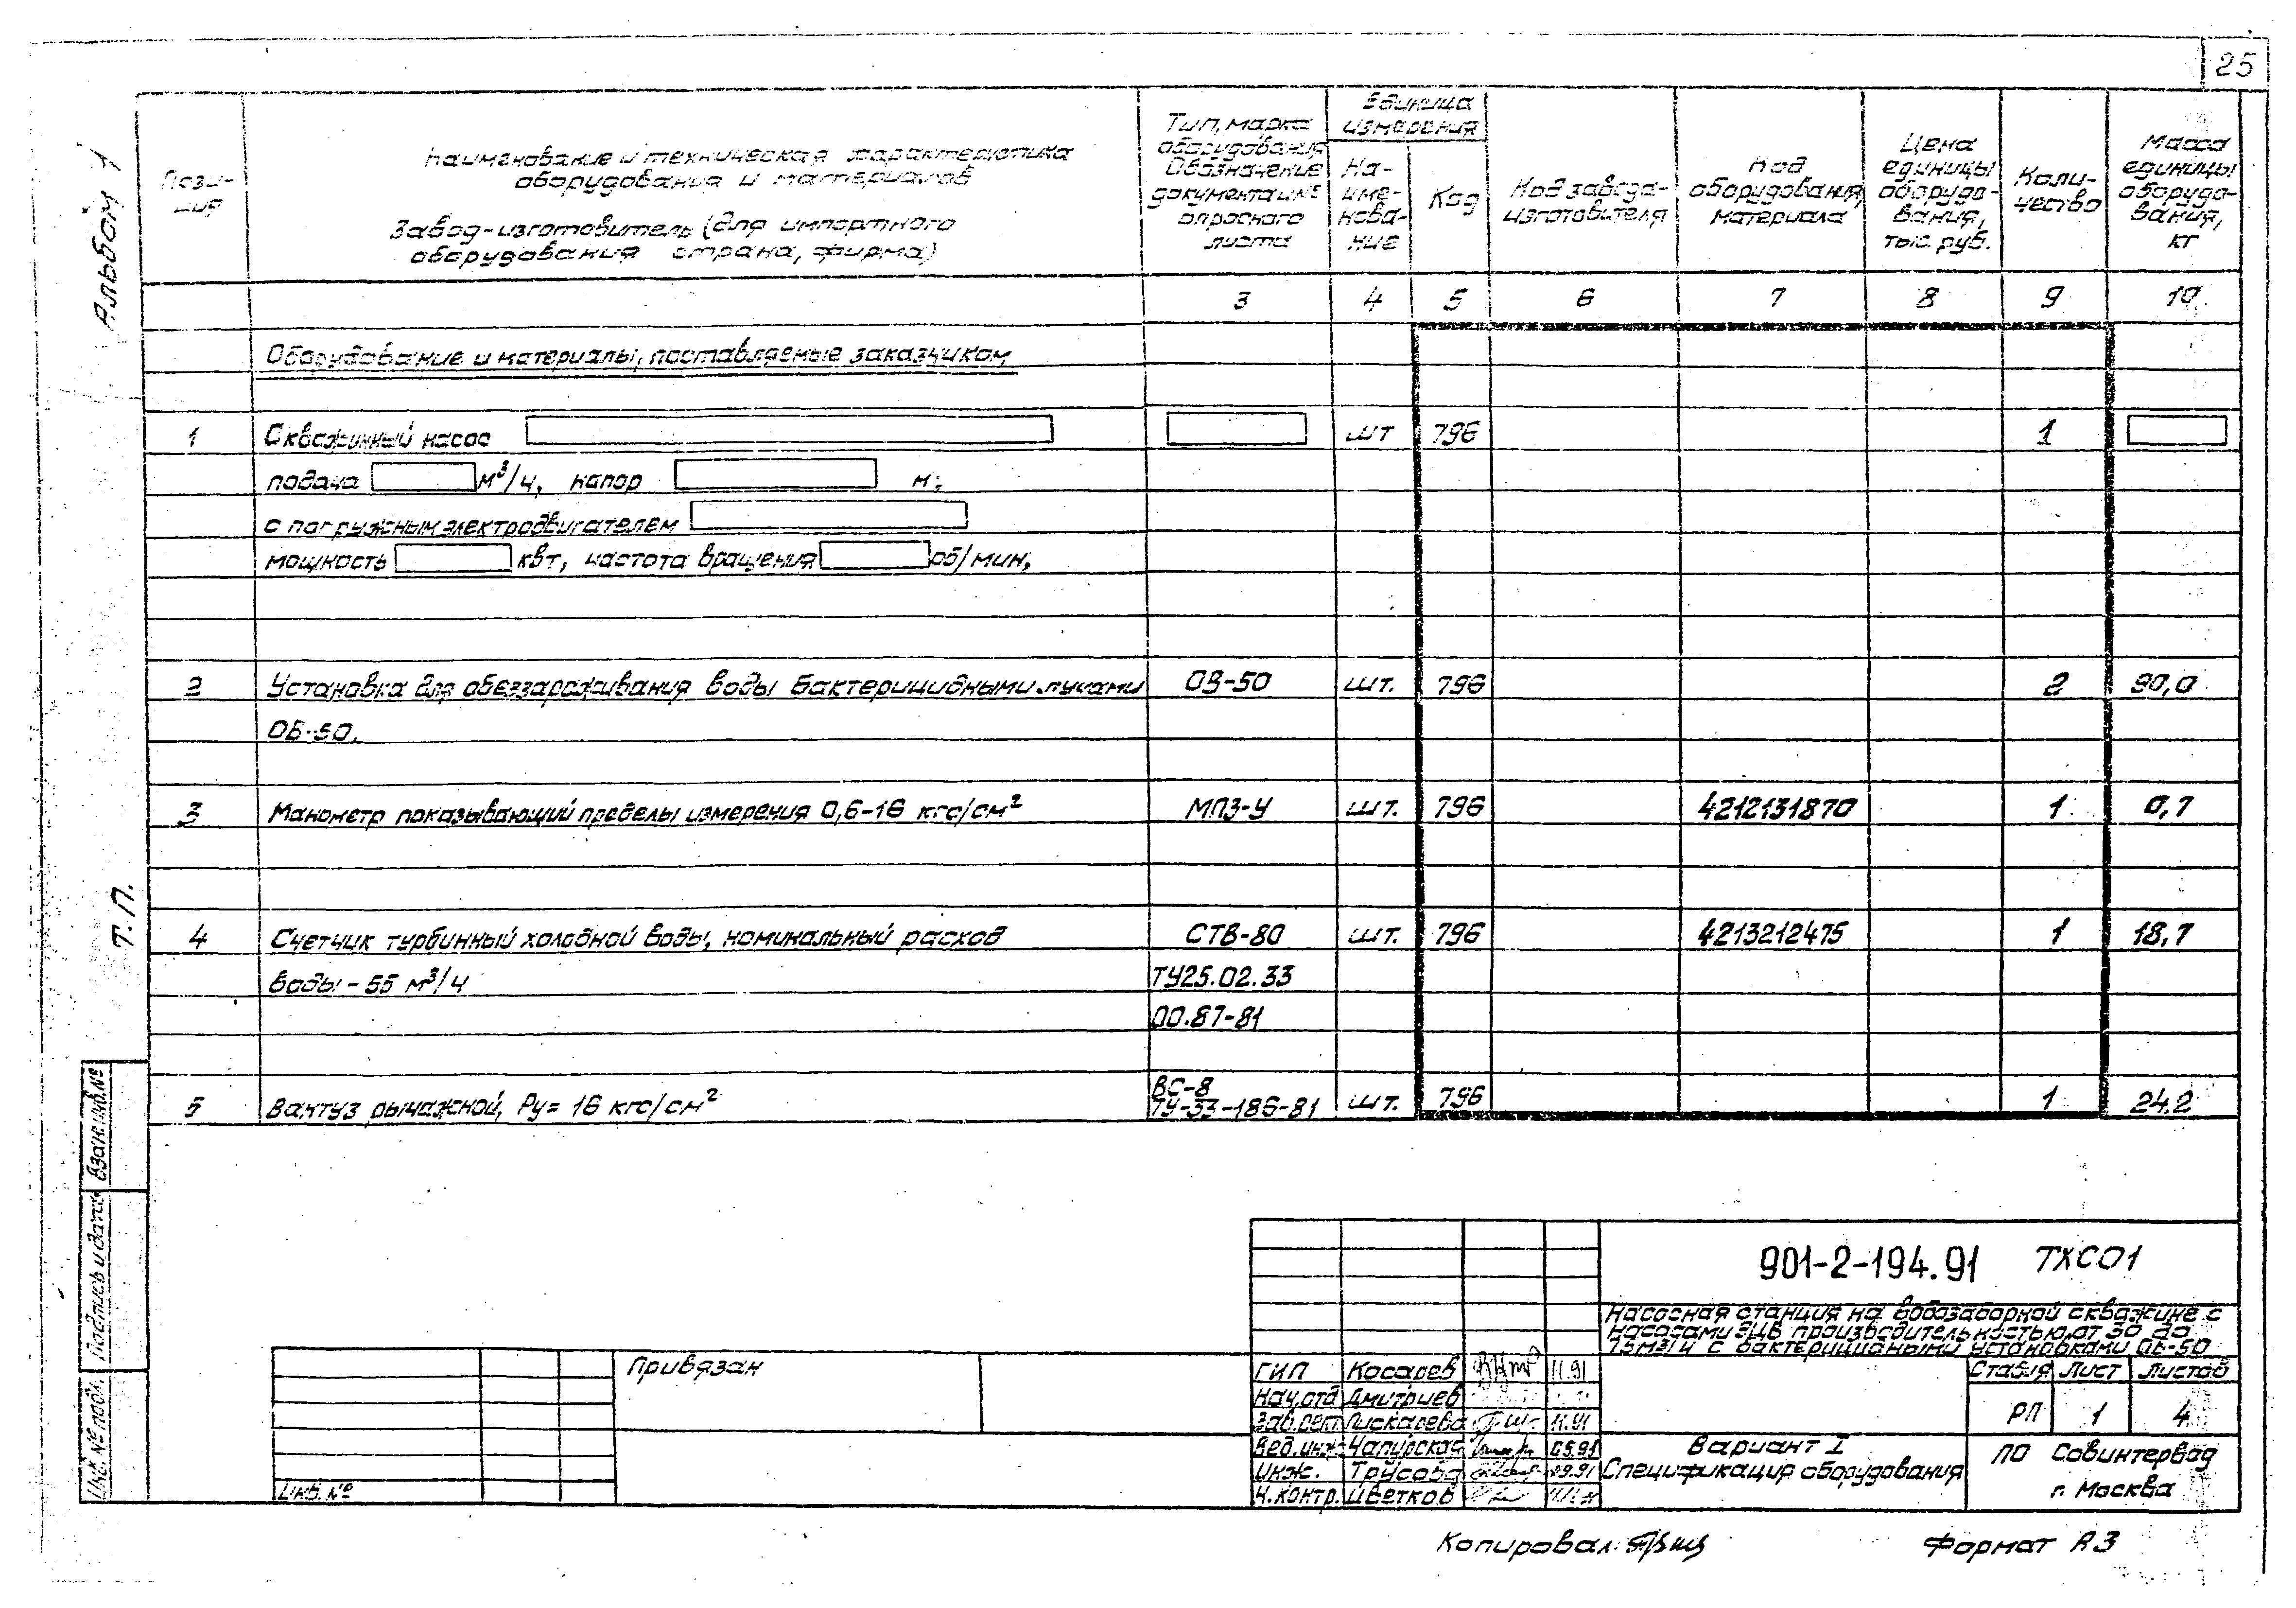 25
Альбом 1
Т.П.
Пози-
ция
Наименование и техническая характеристика
оборудования и материалов
Завод-изготовитель (для импортного
оборудования страна, фирма)
Тип, марка
оборудования
Обозначение
документа и №
опросного
листа
Единица
измерения
На-
име-
нова-
ние
Код
Код завода-
изготовителя
Код
оборудования,
материала
Цена
единицы
оборудо-
вания,
тыс. руб.
Коли-
чество
Масса
единицы
оборудо-
вания,
кг
3 4 5 6 7 8 9 10
Оборудование и материалы, поставляемые заказчиком
1 Скважинный насос шт 796 1
подача м³/ч, напор м,
с погружным электродвигателем
мощность квт, частота вращения об/мин,
2 Установка для обеззараживания воды бактерицидными лучами ОВ-50 шт. 796 2 90,0
ОВ-50.
3 Манометр показывающий пределы измерения 0,6-16 кгс/см² МП3-У шт. 796 4212131870 1 0,7
4 Счетчик турбинный холодной воды, номинальный расход СТВ-80 шт. 796 4213212475 1 18,7
воды - 55 м³/ч ТУ25.02.33
00.87-81
5 Вантуз рычажной, Ру= 16 кгс/см² ВС-8 шт. 796 1 24.2
ТУ-33-186-81
Взам. инв. №
Подпись и дата
Инв. № подл.
901-2-194.91 ТХСО1
Насосная станция на водозаборной скважине с
насосами ЭЦВ производительностью от 30 до
75м³/ч с бактерицидными установками ОВ-50
Привязан
Инв. №
ГИП Косарев 11.91
Нач.отд Дмитриев
Зав.сект Пискарева 11.91
Вед.инж Чапурская 05.91
Инж. Трусова 09.91
Н.контр. Цветков
Стадия Лист Листов
РП 1 4
Вариант I
Спецификация оборудования
ПО Совинтервод
г. Москва
Копировал:
Формат А3